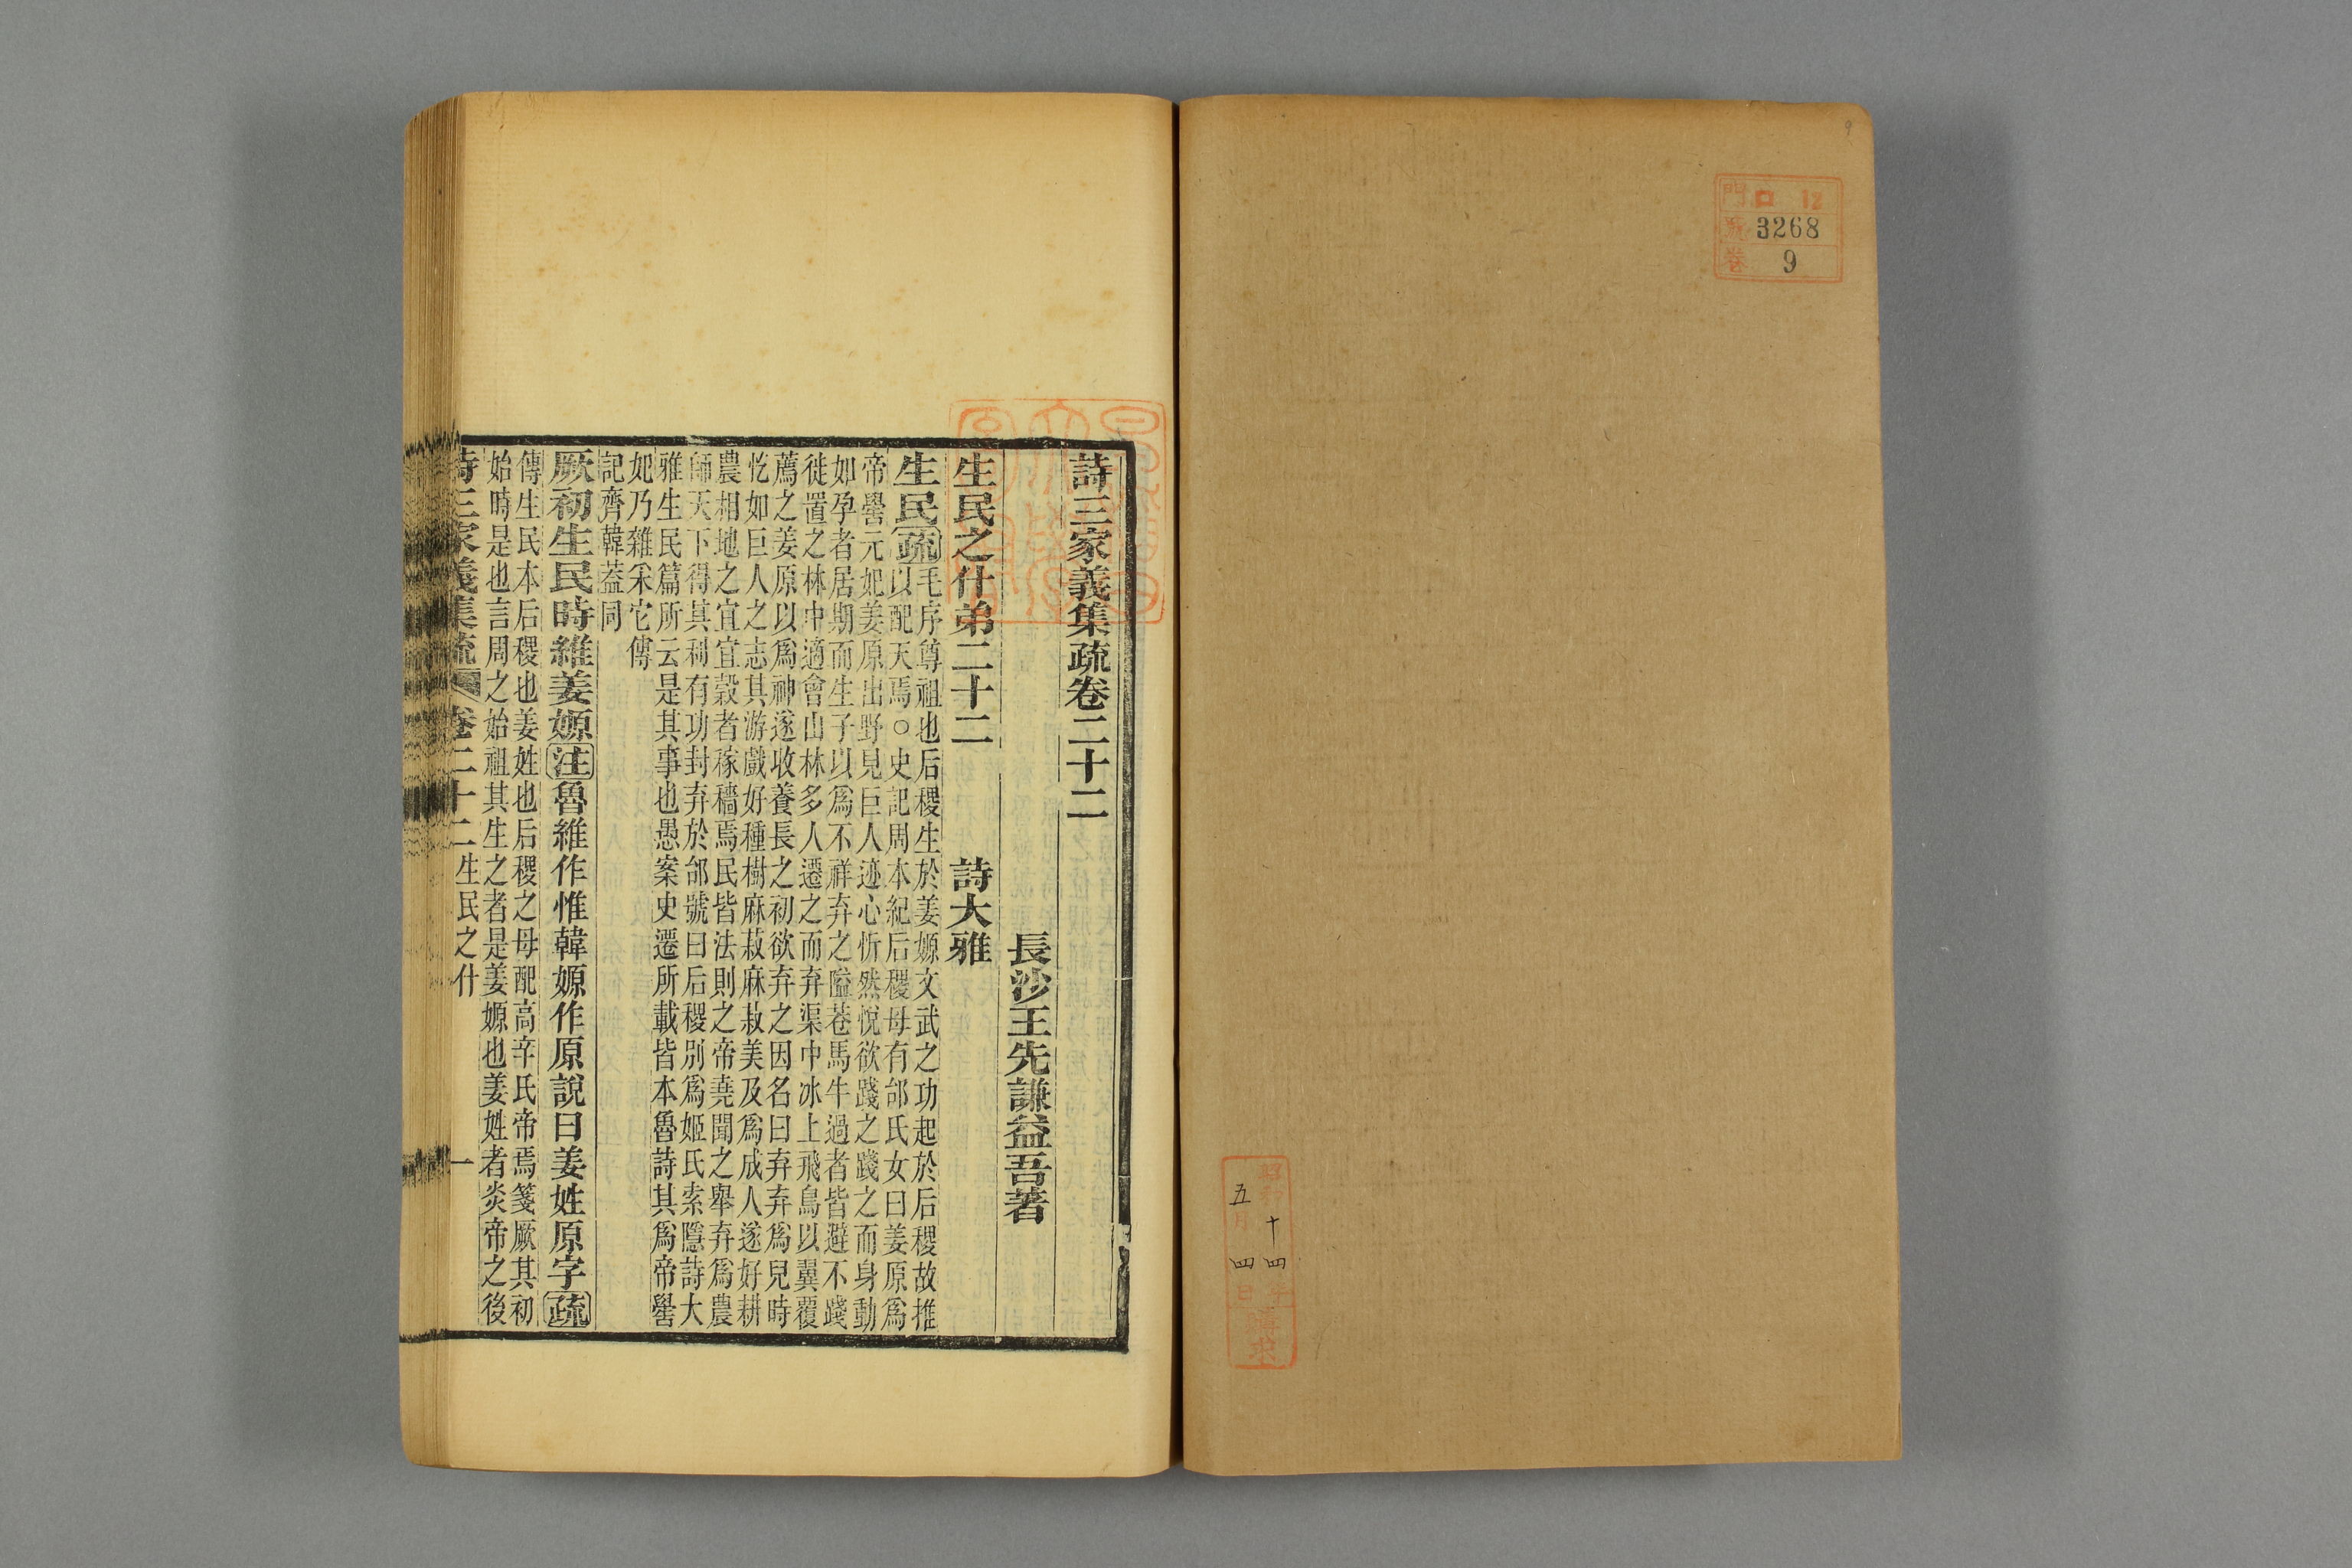 9
門 ロ 12
號 3268
卷 9
昭和十四年
五月四日
購求
詩三家義集疏卷二十二
長沙王先謙益吾著
生民之什弟二十二 詩大雅
生民疏毛序尊祖也后稷生於姜嫄文武之功起於后稷故推
以配天焉○史記周本紀后稷母有邰氏女曰姜原爲
帝嚳元妃姜原出野見巨人迹心忻然悅欲踐之踐之而身動
如孕者居期而生子以爲不祥弃之隘巷馬牛過者皆避不踐
徙置之林中適會山林多人遷之而弃渠中冰上飛鳥以翼覆
薦之姜原以爲神遂收養長之初欲弃之因名曰弃弃爲兒時
忔如巨人之志其游戲好種樹麻菽麻菽美及爲成人遂好耕
農相地之宜宜穀者稼穡焉民皆法則之帝堯聞之舉弃爲農
師天下得其利有功封弃於邰號曰后稷別爲姬氏索隱詩大
雅生民篇所云是其事也愚案史遷所載皆本魯詩其爲帝嚳
妃乃雜釆它傳
記齊韓蓋同
厥初生民時維姜嫄注魯維作惟韓嫄作原說曰姜姓原字疏
傳生民本后稷也姜姓也后稷之母配高辛氏帝焉箋厥其初
始時是也言周之始祖其生之者是姜嫄也姜姓者炎帝之後
詩三家義集疏 卷二十二 生民之什 一